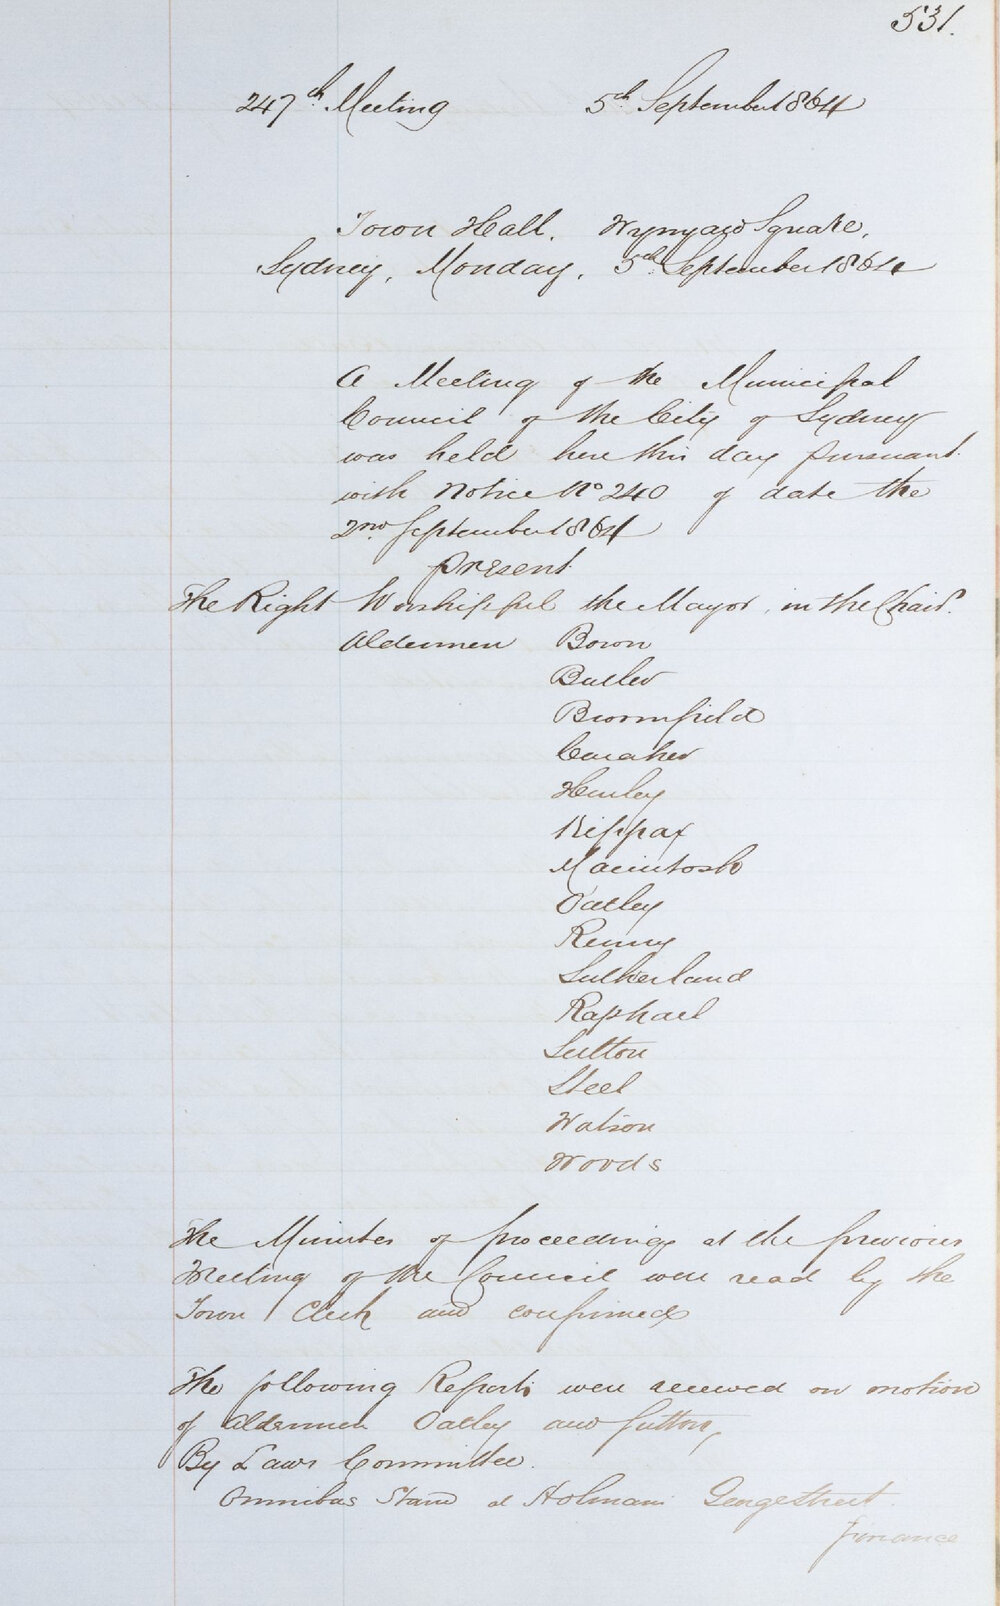 531.
247th Meeting 5th September 1864
Town Hall. Wynyard Square,
Sydney, Monday, 5th September 1864
A Meeting of the Municipal
Council of the City of Sydney
was held here this day pursuant
with Notice No 240 of date the
2nd September 1864
Present
The Right Worshipful the Mayor, in the Chair.
Aldermen Bown
Butler
Broomfield
Caraher
Hurley
Kippax
Macintosh
Oatley
Renny
Sutherland
Raphael
Sutton
Steel
Watson
Woods
The Minutes of proceedings at the previous
Meeting of the Council were read by the
Town Clerk and confirmed
The following Reports were received on motion
of Aldermen Oatley and Sutton,
By Laws Committee.
Omnibus Stand at Holmans George Street.
Finance